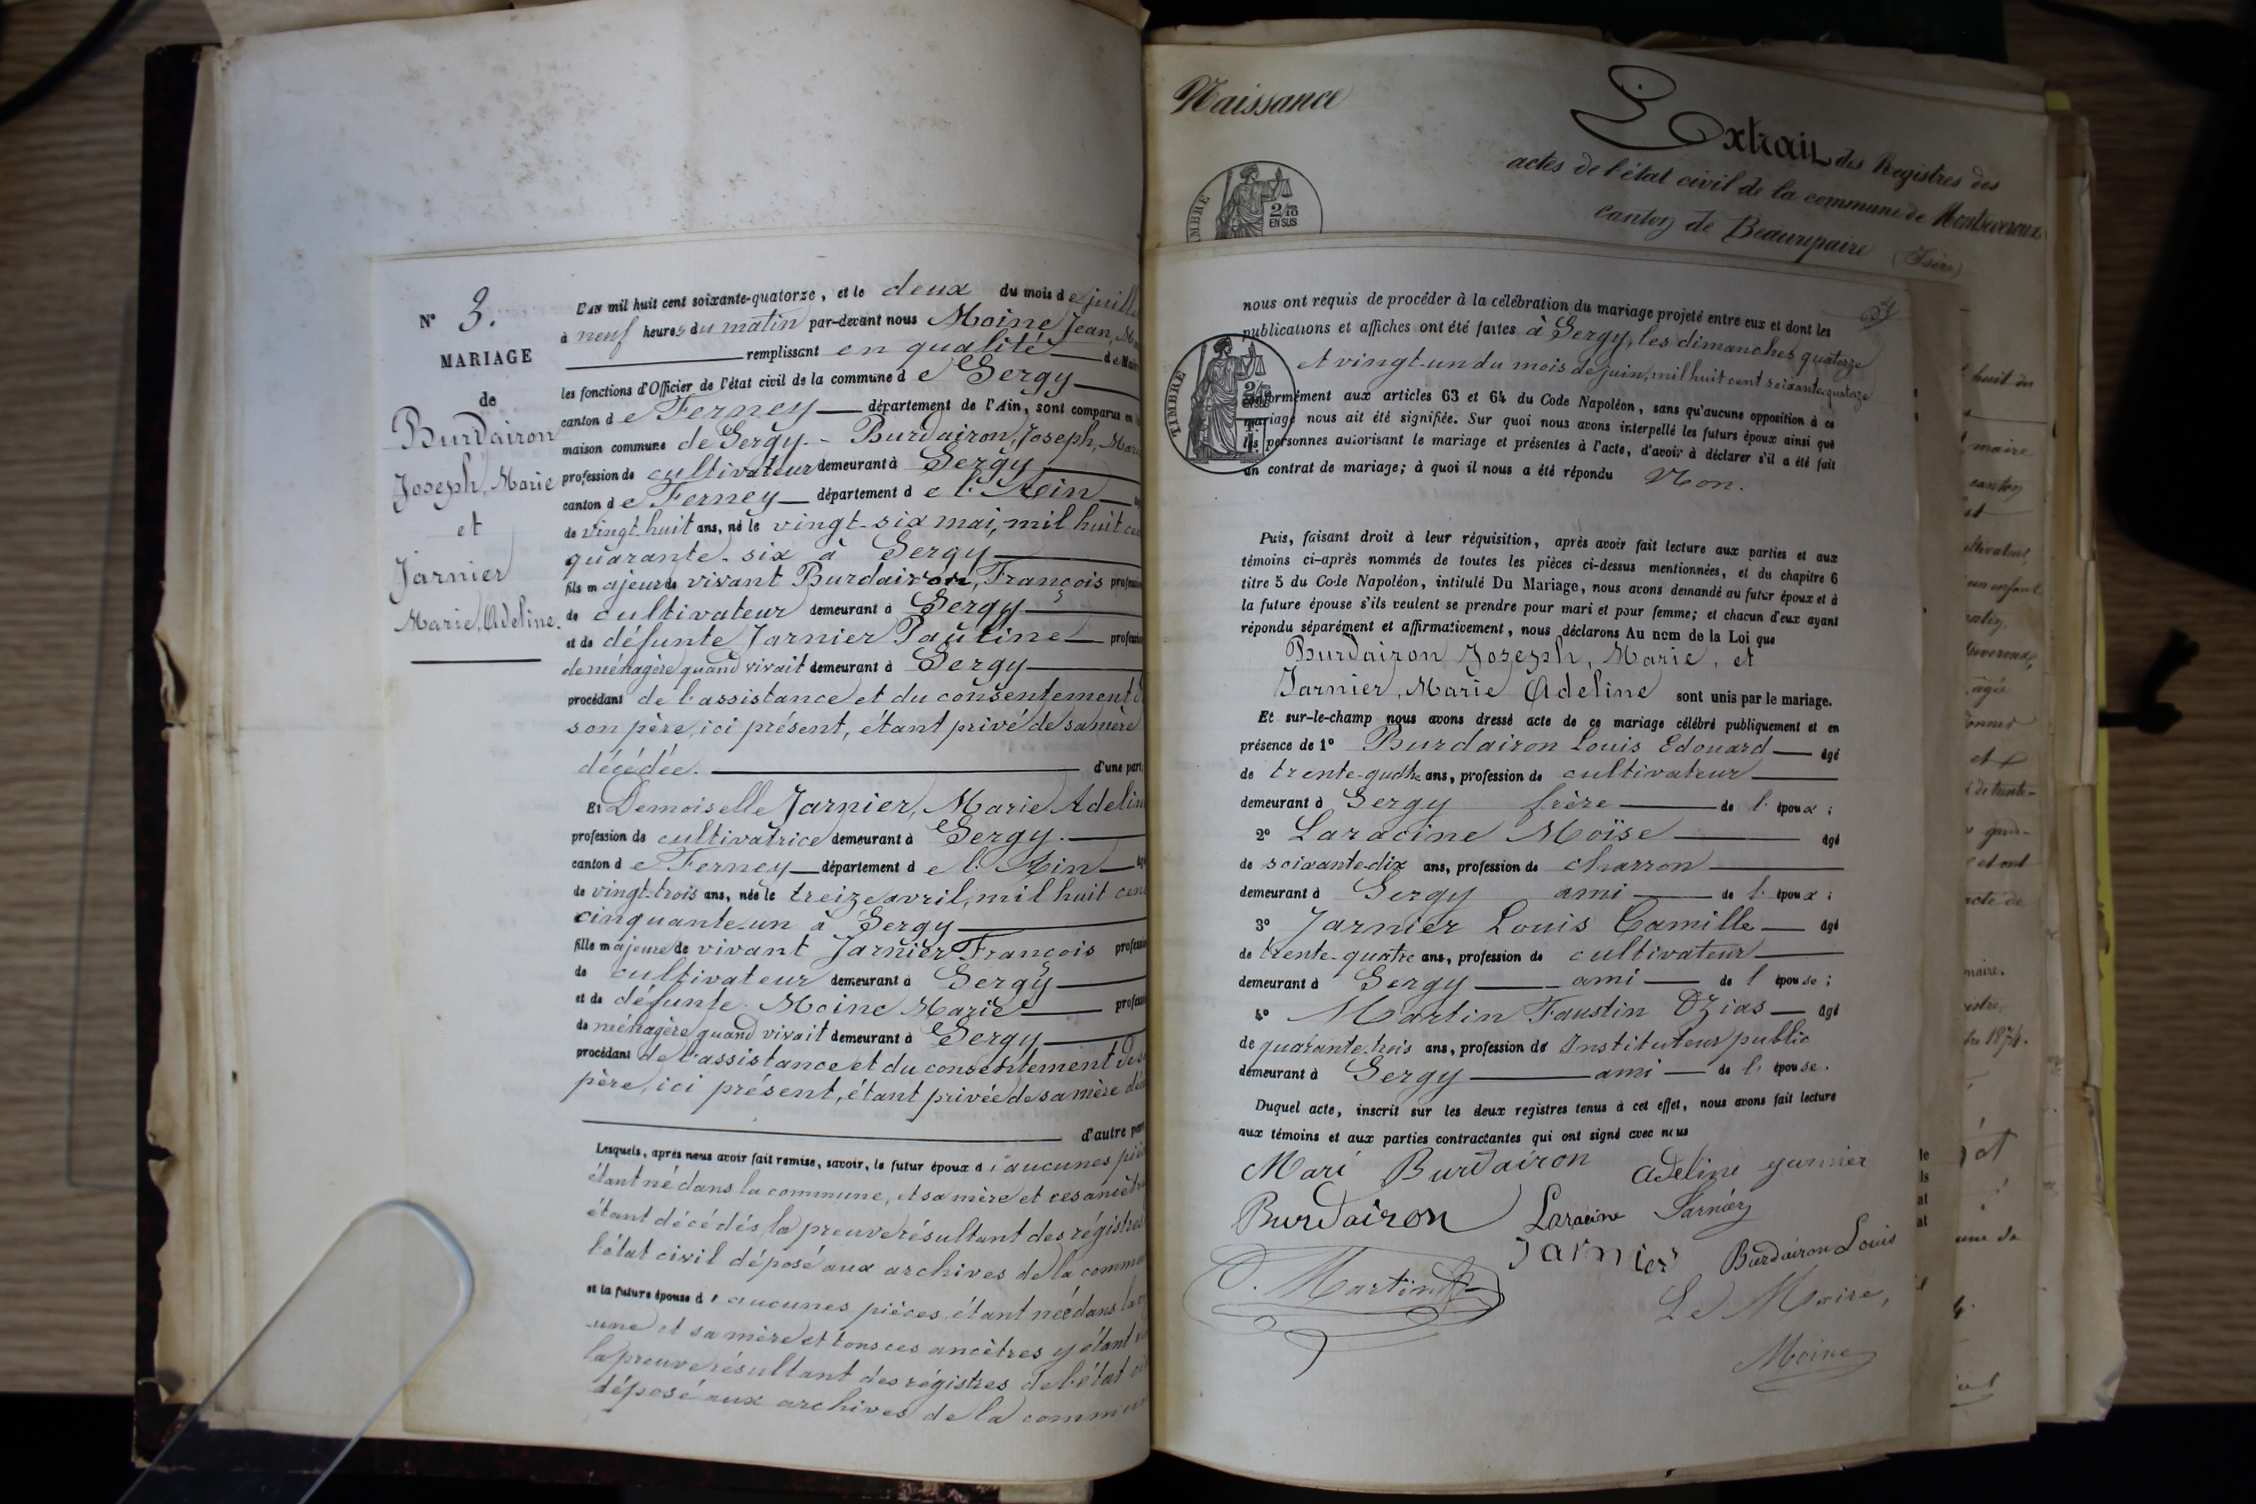 N° 3.
MARIAGE
de
Burdairon
Joseph, Marie
et
Jarnier
Marie, Adeline.
L'AN mil huit cent soixante-quatorze, et le deux du mois de juill
à neuf heures du matin par-devant nous Moine Jean, M
remplissant en qualité de Mai
les fonctions d'Officier de l'état civil de la commune de Sergy
canton de Ferney département de l'Ain, sont comparus en
maison commune de Sergy - Burdairon, Joseph, Mari
profession de cultivateur demeurant à Sergy
canton de Ferney département de l'Ain
de vingt-huit ans, né le vingt-six mai, mil huit ce
quarante-six à Sergy
fils majeur de vivant Burdairon, François profession
de cultivateur demeurant à Sergy
et de défunte Jarnier Pauline profession
de ménagère quand vivait demeurant à Sergy
procédant de l'assistance et du consentement d
son père, ici présent, étant privé de sa mère
décédée. d'une part,
Et Demoiselle Jarnier, Marie Adelin
profession de cultivatrice demeurant à Sergy.
canton de Ferney département de l'Ain
de vingt-trois ans, née le treize avril, mil huit cen
cinquante-un à Sergy
fille majeure de vivant Jarnier François profession
de cultivateur demeurant à Sergy
et de défunte Moine Marie profession
de ménagère quand vivait demeurant à Sergy
procédant de l'assistance et du consentement de s
père, ici présent, étant privée de sa mère dé
d'autre part
Lesquels, après nous avoir fait remise, savoir, le futur époux d'aucunes piè
étant né dans la commune, et sa mère et ces ancêtr
étant décédés la preuve résultant des régistres
l'état civil déposé aux archives de la commu
et la future épouse d'aucunes pièces, étant née dans la
une et sa mère et tous ces ancêtres y étant
la preuve résultant des régistres de l'état
déposé aux archives de la commun
Naissance
Extrait des Registres des
actes de l'état civil de la commune de Montseveroux
canton de Beaurepaire (Isère)
TIMBRE
2/10
EN SUS
nous ont requis de procéder à la célébration du mariage projeté entre eux et dont les
publications et affiches ont été faites à Sergy, les dimanches quatorze
et vingt-un du mois de juin, mil huit cent soixante-quatorze
conformément aux articles 63 et 64 du Code Napoléon, sans qu'aucune opposition à ce
mariage nous ait été signifiée. Sur quoi nous avons interpellé les futurs époux ainsi que
les personnes autorisant le mariage et présentes à l'acte, d'avoir à déclarer s'il a été fait
un contrat de mariage; à quoi il nous a été répondu Non.
TIMBRE
2/10
EN SUS
Puis, faisant droit à leur réquisition, après avoir fait lecture aux parties et aux
témoins ci-après nommés de toutes les pièces ci-dessus mentionnées, et du chapitre 6
titre 5 du Code Napoléon, intitulé Du Mariage, nous avons demandé au futur époux et à
la future épouse s'ils veulent se prendre pour mari et pour femme; et chacun d'eux ayant
répondu séparément et affirmativement, nous déclarons Au nom de la Loi que
Burdairon Joseph, Marie, et
Jarnier, Marie Adeline sont unis par le mariage.
Et sur-le-champ nous avons dressé acte de ce mariage célébré publiquement et en
présence de 1° Burdairon Louis Edouard âgé
de trente-quatre ans, profession de cultivateur
demeurant à Sergy frère de l'époux;
2° Laracine Moïse âgé
de soixante-dix ans, profession de charron
demeurant à Sergy ami de l'époux;
3° Jarnier Louis Camille âgé
de trente-quatre ans, profession de cultivateur
demeurant à Sergy ami de l'épouse;
4° Martin Faustin Ozias âgé
de quarante-trois ans, profession de Instituteur public
demeurant à Sergy ami de l'épouse.
Duquel acte, inscrit sur les deux registres tenus à cet effet, nous avons fait lecture
aux témoins et aux parties contractantes qui ont signé avec nous
Mari Burdairon Adeline garnier
Burdairon Laracine Jarnier
Jarnier Burdairon Louis
O. Martin
Le Maire,
Moine
maire
canton
un enfant
acte de
maire.
1874.